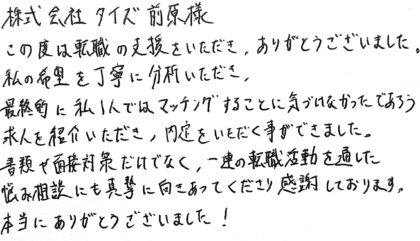 株式会社タイズ 前原様
この度は転職の支援をいただき，ありがとうございました。
私の希望を丁寧に分析いただき、
最終的に私1人ではマッチングすることに気づけなかったであろう
求人を紹介いただき，内定をいただく事ができました。
書類や面接対策だけでなく，一連の転職活動を通した
悩み相談にも真摯に向きあってくださり感謝しております。
本当にありがとうございました！